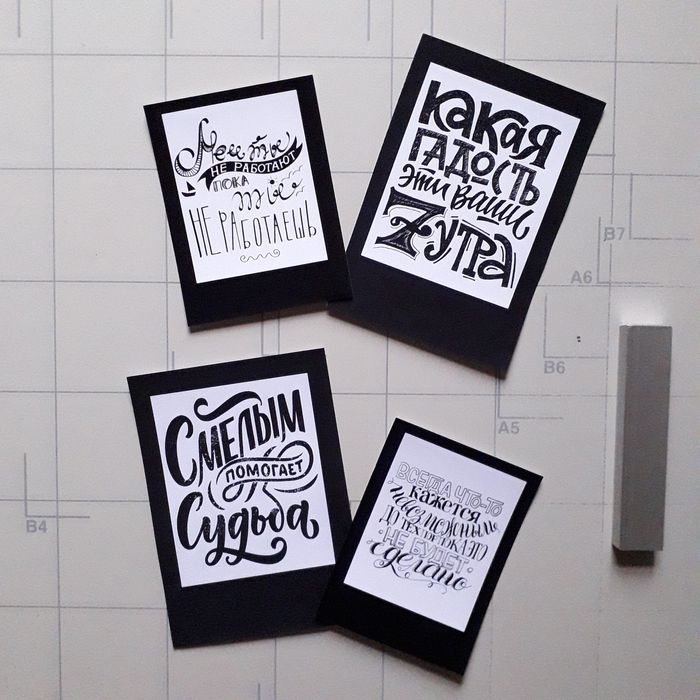 Мечты
НЕ РАБОТАЮТ
ПОКА
ты
НЕ РАБОТАЕШЬ
какая
гадость
эти ваши
7 утра
Смелым
помогает
Судьба
ВСЕГДА ЧТО-ТО
кажется
невозможным
ДО ТЕХ ПОР ПОКА ЭТО
НЕ БУДЕТ
сделано
B7
A6
B6
A5
B4